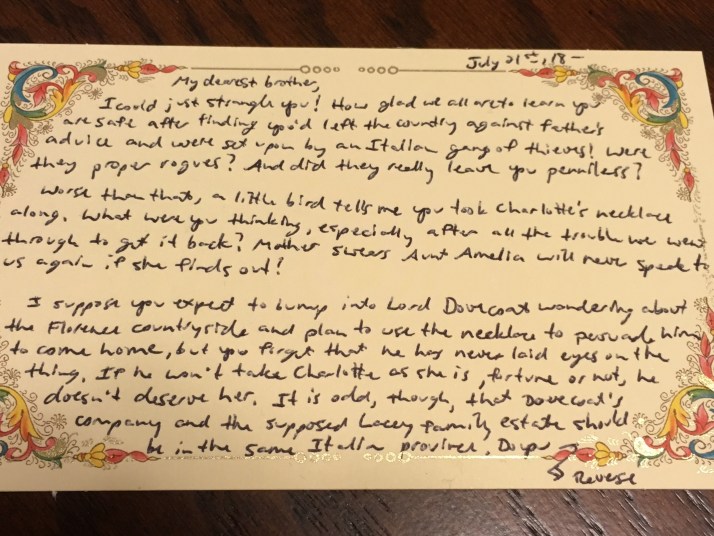 July 21st, 18-
My dearest brother,
I could just strangle you! How glad we all are to learn you
are safe after finding you'd left the country against father's
advice and were set upon by an Italian gang of thieves! Were
they proper rogues? And did they really leave you penniless?
Worse than that, a little bird tells me you took Charlotte's necklace
along. What were you thinking, especially after all the trouble we went
through to get it back? Mother swears Aunt Amelia will never speak to
us again if she finds out!
I suppose you expect to bump into Lord Dovecoat wondering about
the Florence countryside and plan to use the necklace to persuade him
to come home, but you forget that he has never laid eyes on the
thing. If he won't take Charlotte as she is, fortune or not, he
doesn't deserve her. It is odd, though, that Dovecoat's
company and the supposed Lacey family estate should
be in the same Italian province. Do you
Reverse